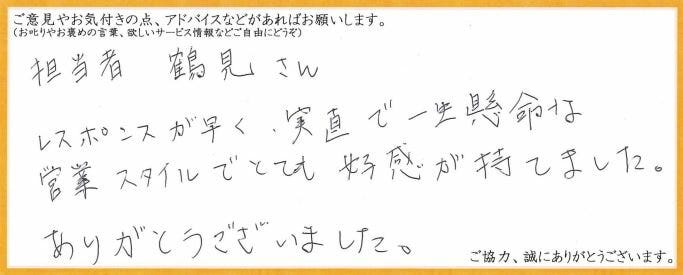 ご意見やお気付きの点、アドバイスなどがあればお願いします。
(お叱りやお褒めの言葉、欲しいサービス情報などご自由にどうぞ)
担当者 鶴見さん
レスポンスが早く、実直で一生懸命な
営業スタイルでとても好感が持てました。
ありがとうございました。
ご協力、誠にありがとうございます。